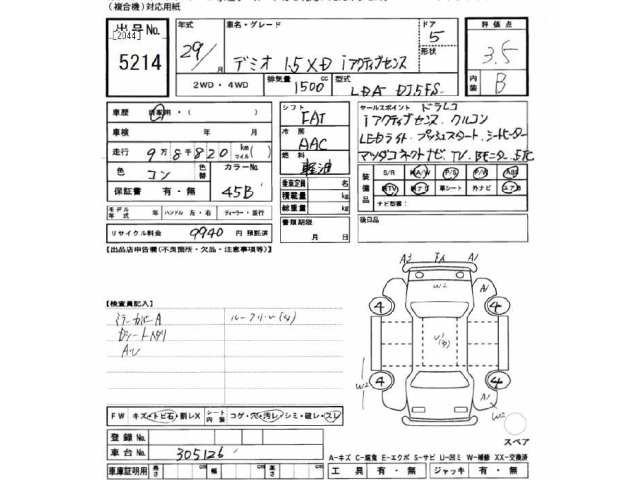 (複合機)対応用紙
出品No. 年式 車名・グレード ドア 評価点
[2044]
5214 29/ デミオ 1.5XD iアクティブセンス 5 3.5
形状
2WD・4WD 排気量 1500 cc 型式 LDA-DJ5FS 内装 B
車歴 自家用・( ) シフト FAT セールスポイント ドラレコ
車検 年 月 冷房 AAC iアクティブセンス. クルコン
走行 9万8千820 km(マイル) 燃料 軽油 LEDライト. プッシュスタート. シートヒーター
色 コン 色替 カラーNo. 45B マツダコネクトナビ. TV. Bモニター. ETC
保証書 有・無
乗車定員 名
積載量 kg
総重量 kg
装備品 S/R A/W P/S P/W ABS
純TV 純ナビ 革シート 外ナビ エアB
ナビ型番:
モデル年式 年 ハンドル 左・右 ディーラー・並行 書類期限 月 日 後日品
リサイクル料金 9940 円 預託済
【出品店申告欄(不良箇所・欠品・注意事項等)】
【検査員記入】
ミラーカバーA
A・U
A2 FA A1
W2
4 4
A1
U1(多)
4 4
A1
W2
W2
FW キズ・トビ石・割レX シート内張 コゲ・穴・汚レ・シミ・破レ・スレ
スペア
登録No.
車台No. 305126
A-キズ C-腐食 E-エクボ S-サビ U-凹ミ W-補修 XX-交換済
車庫証明用 長さ cm 幅 cm 高さ cm 工具 有・無 ジャッキ 有・無